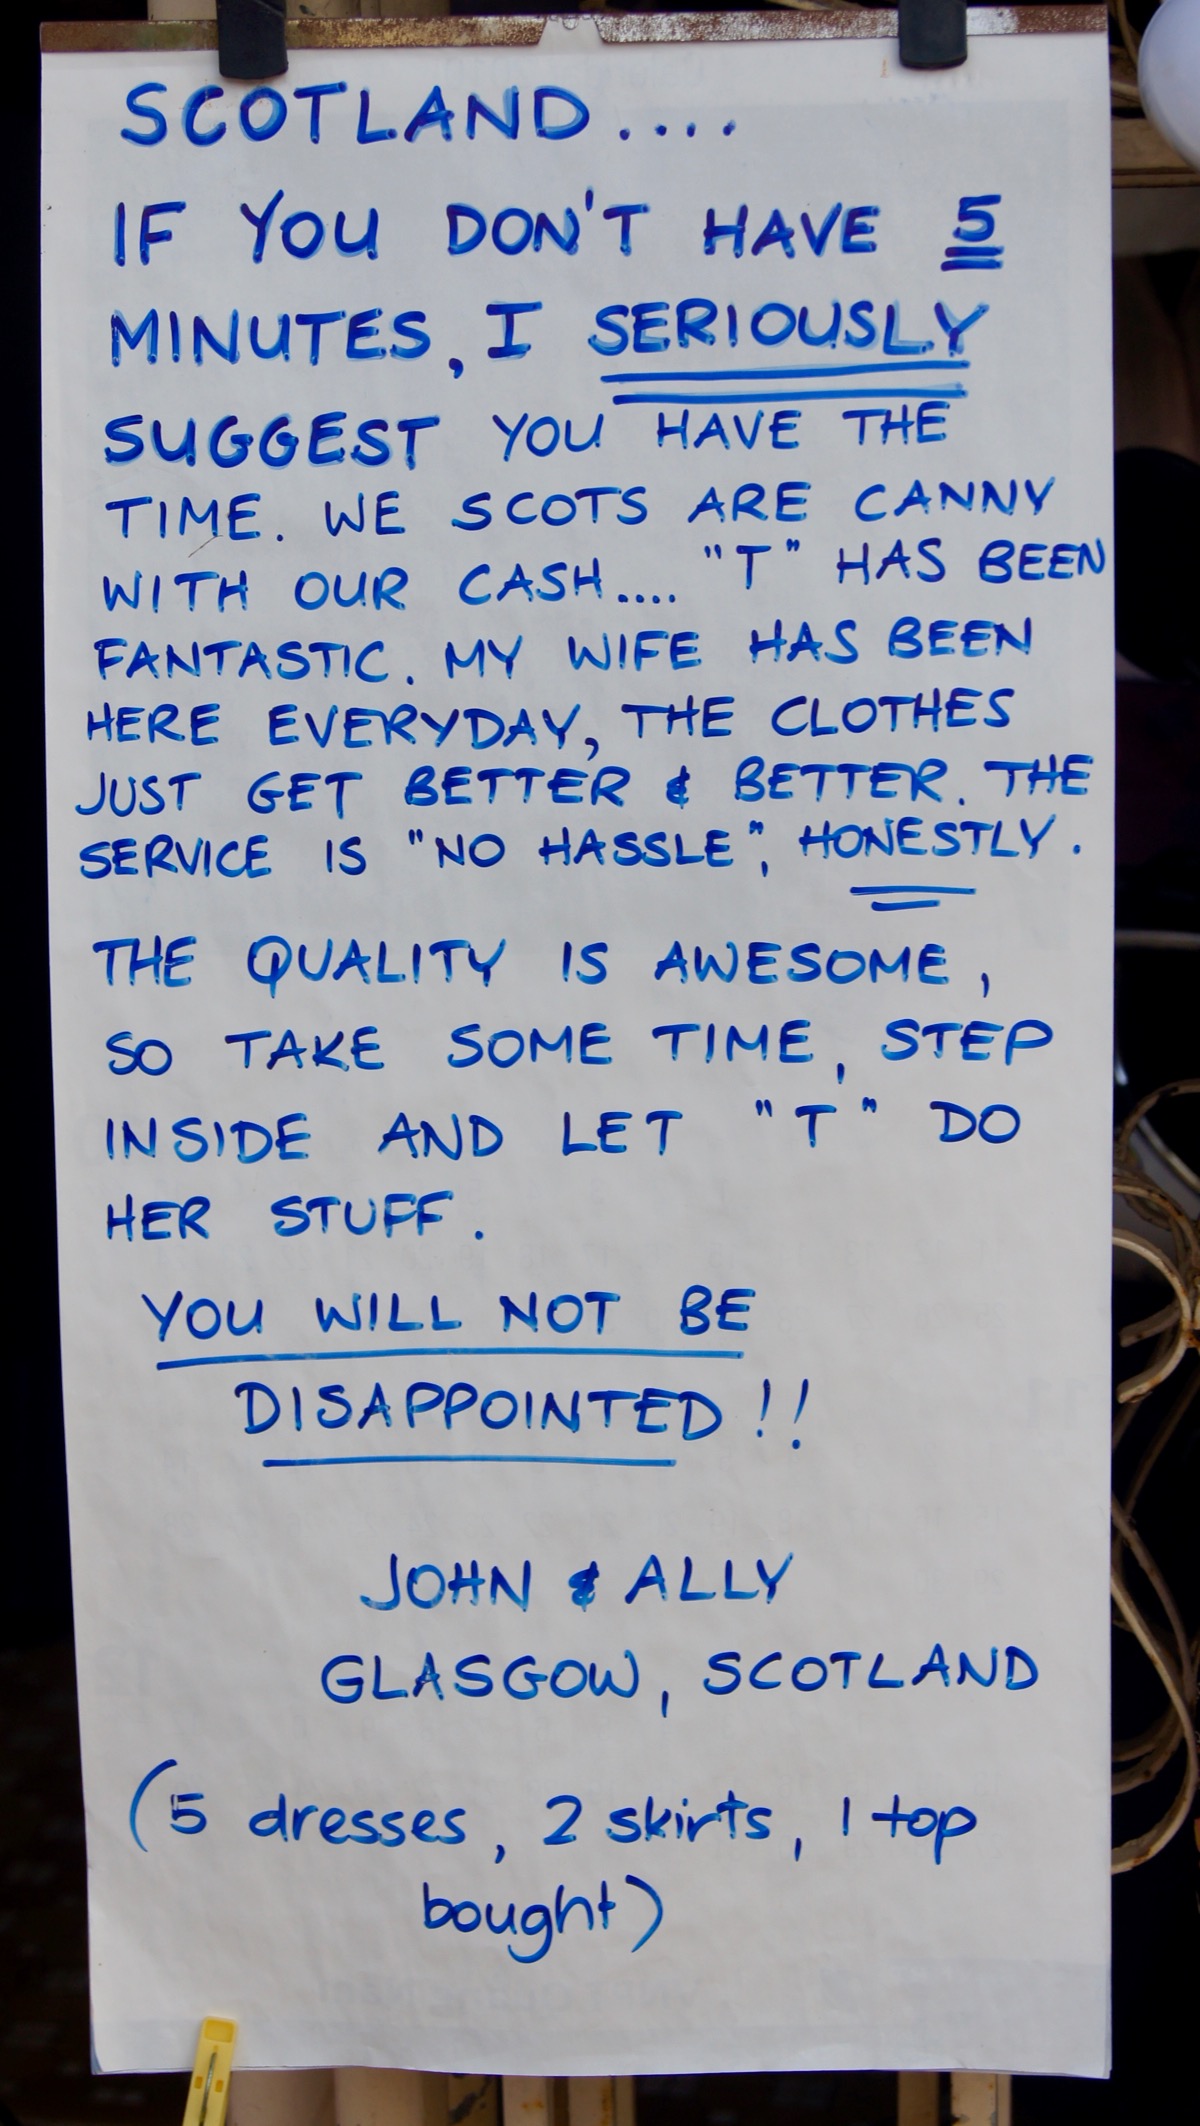 SCOTLAND....
IF YOU DON'T HAVE 5
MINUTES, I SERIOUSLY
SUGGEST YOU HAVE THE
TIME. WE SCOTS ARE CANNY
WITH OUR CASH.... "T" HAS BEEN
FANTASTIC. MY WIFE HAS BEEN
HERE EVERYDAY, THE CLOTHES
JUST GET BETTER & BETTER. THE
SERVICE IS "NO HASSLE", HONESTLY.
THE QUALITY IS AWESOME,
SO TAKE SOME TIME, STEP
INSIDE AND LET "T" DO
HER STUFF.
YOU WILL NOT BE
DISAPPOINTED!!
JOHN & ALLY
GLASGOW, SCOTLAND
(5 dresses, 2 skirts, 1 top
bought)